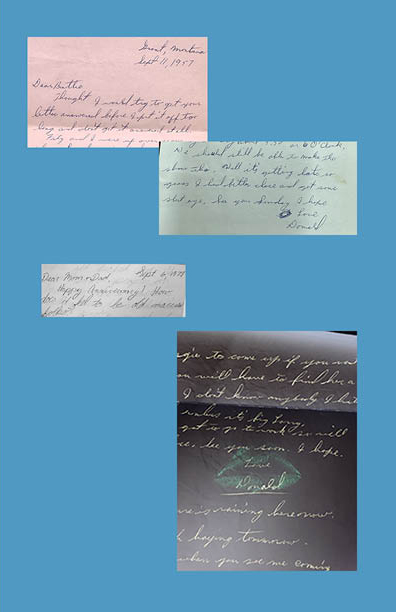 Grant, Montana
Sept 11, 1957
Dear Bettie
Thought I would try to get your
letter answered before I put it off too
long and don't get it answered at all.
and I were up
or 6 O'clock.
We should still be able to make the
show tho. Well it's getting late so
guess I had better close and get some
shut eye. See you Sunday I hope
Love
Donald
Sept 6, 1978
Dear Mom & Dad,
Happy Anniversary! How
does it feel to be old married
folks?
to come up if you
will have to find her a
I don't know anybody I
unless it's by Tony.
get to go to work so will
see you soon. I hope.
Love
Donald
is raining here now.
haying tomorrow.
when you see me coming